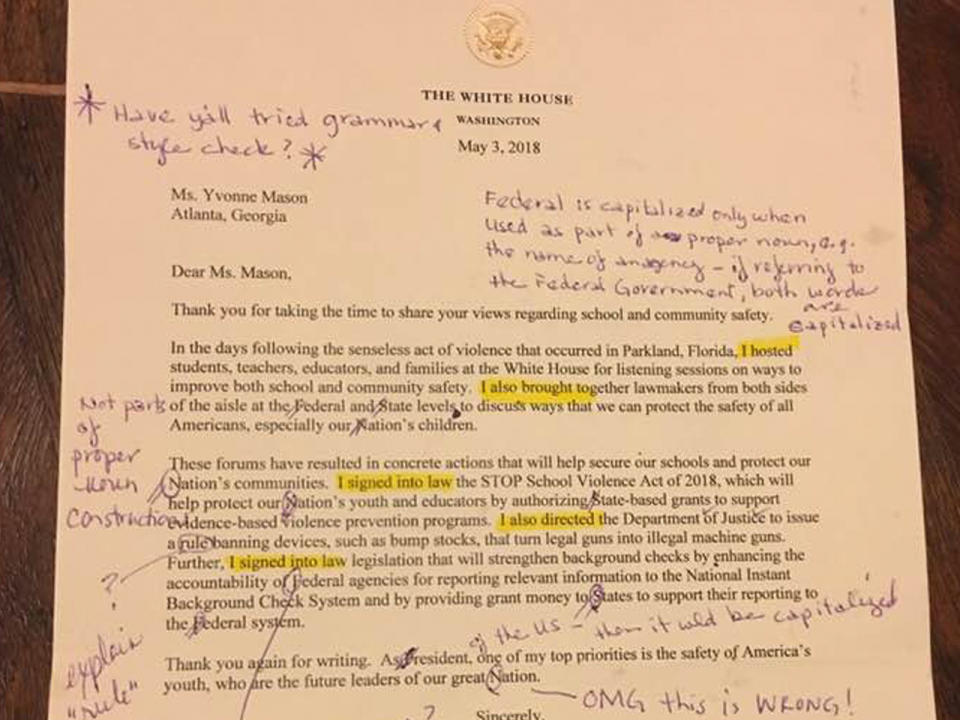 THE WHITE HOUSE
* Have y'all tried grammar &
WASHINGTON
style check? *
May 3, 2018
Ms. Yvonne Mason
Atlanta, Georgia
Federal is capitalized only when
used as part of proper noun, e.g.
the name of an agency – if referring to
the Federal Government, both words
are
capitalized
Dear Ms. Mason,
Thank you for taking the time to share your views regarding school and community safety.
In the days following the senseless act of violence that occurred in Parkland, Florida, I hosted
students, teachers, educators, and families at the White House for listening sessions on ways to
improve both school and community safety. I also brought together lawmakers from both sides
of the aisle at the Federal and State levels to discuss ways that we can protect the safety of all
Americans, especially our Nation's children.
Not part
of
proper
noun
construction
These forums have resulted in concrete actions that will help secure our schools and protect our
Nation's communities. I signed into law the STOP School Violence Act of 2018, which will
help protect our Nation's youth and educators by authorizing State-based grants to support
evidence-based violence prevention programs. I also directed the Department of Justice to issue
a rule banning devices, such as bump stocks, that turn legal guns into illegal machine guns.
Further, I signed into law legislation that will strengthen background checks by enhancing the
accountability of Federal agencies for reporting relevant information to the National Instant
Background Check System and by providing grant money to States to support their reporting to
the Federal system.
?
explain
"rule"
of the US – then it wld be capitalized
Thank you again for writing. As President, one of my top priorities is the safety of America's
youth, who are the future leaders of our great Nation.
OMG this is WRONG!
?
Sincerely,